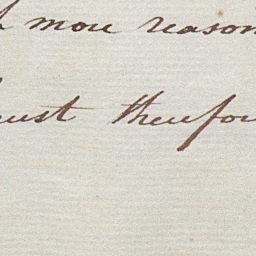 more reason
must therefor